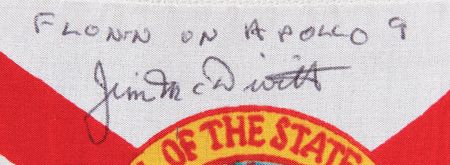 FLOWN ON APOLLO 9
Jim McDivitt
OF THE STATE